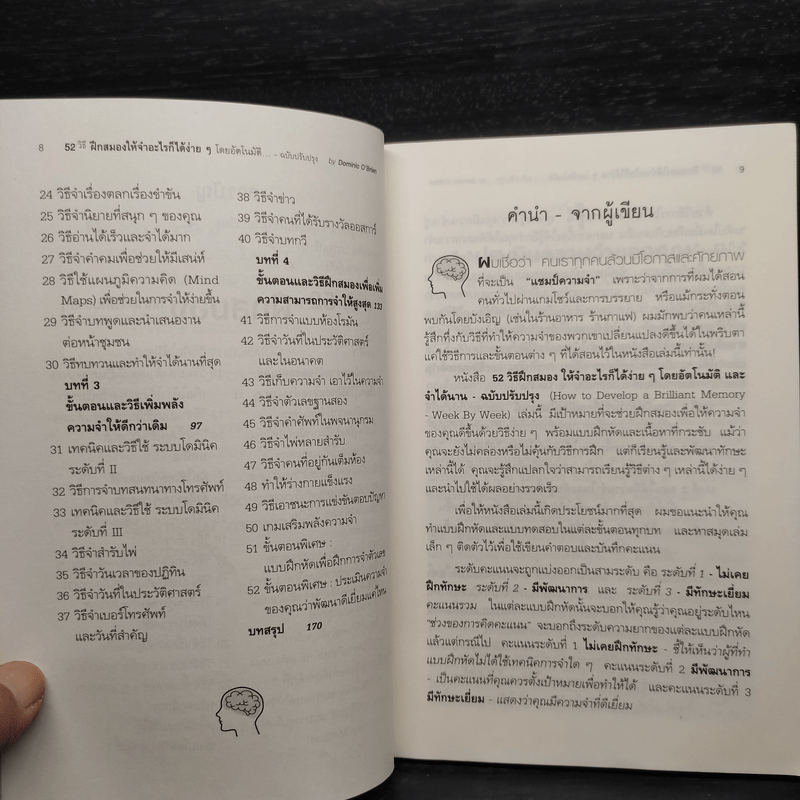 8 52 วิธี ฝึกสมองให้จำอะไรก็ได้ง่าย ๆ โดยอัตโนมัติ... - ฉบับปรับปรุง by Dominic O'Brien
24 วิธีจำเรื่องตลกเรื่องขำขัน
25 วิธีจำนิยายที่สนุก ๆ ของคุณ
26 วิธีอ่านได้เร็วและจำได้มาก
27 วิธีจำคำคมเพื่อช่วยให้มีเสน่ห์
28 วิธีใช้แผนภูมิความคิด (Mind
Maps) เพื่อช่วยในการจำให้ง่ายขึ้น
29 วิธีจำบทพูดและนำเสนองาน
ต่อหน้าชุมชน
30 วิธีทบทวนและทำให้จำได้นานที่สุด
บทที่ 3
ขั้นตอนและวิธีเพิ่มพลัง
ความจำให้ดีกว่าเดิม 97
31 เทคนิคและวิธีใช้ ระบบโดมินิค
ระดับที่ II
32 วิธีการจำบทสนทนาทางโทรศัพท์
33 เทคนิคและวิธีใช้ ระบบโดมินิค
ระดับที่ III
34 วิธีจำสำรับไพ่
35 วิธีจำวันเวลาของปฏิทิน
36 วิธีจำวันที่ในประวัติศาสตร์
37 วิธีจำเบอร์โทรศัพท์
และวันที่สำคัญ
38 วิธีจำข่าว
39 วิธีจำคนที่ได้รับรางวัลออสการ์
40 วิธีจำบทกวี
บทที่ 4
ขั้นตอนและวิธีฝึกสมองเพื่อเพิ่ม
ความสามารถการจำให้สูงสุด 133
41 วิธีการจำแบบห้องโรมัน
42 วิธีจำวันที่ในประวัติศาสตร์
และในอนาคต
43 วิธีเก็บความจำ เอาไว้ในความจำ
44 วิธีจำตัวเลขฐานสอง
45 วิธีจำคำศัพท์ในพจนานุกรม
46 วิธีจำไพ่หลายสำรับ
47 วิธีจำคนที่อยู่กันเต็มห้อง
48 ทำให้ร่างกายแข็งแรง
49 วิธีเอาชนะการแข่งขันตอบปัญหา
50 เกมเสริมพลังความจำ
51 ขั้นตอนพิเศษ :
แบบฝึกหัดเพื่อฝึกการจำตัวเลข
52 ขั้นตอนพิเศษ : ประเมินความจำ
ของคุณว่าพัฒนาดีเยี่ยมแค่ไหน
บทสรุป 170
9
คำนำ - จากผู้เขียน
ผมเชื่อว่า คนเราทุกคนล้วนมีโอกาสและศักยภาพ
ที่จะเป็น "แชมป์ความจำ" เพราะว่าจากการที่ผมได้สอน
คนทั่วไปผ่านเกมโชว์และการบรรยาย หรือแม้กระทั่งตอน
พบกันโดยบังเอิญ (เช่นในร้านอาหาร ร้านกาแฟ) ผมมักพบว่าคนเหล่านี้
รู้สึกทึ่งกับวิธีที่ทำให้ความจำของพวกเขาเปลี่ยนแปลงดีขึ้นได้ในพริบตา
แค่ใช้วิธีการและขั้นตอนต่าง ๆ ที่ได้สอนไว้ในหนังสือเล่มนี้เท่านั้น!
หนังสือ 52 วิธีฝึกสมอง ให้จำอะไรก็ได้ง่าย ๆ โดยอัตโนมัติ และ
จำได้นาน - ฉบับปรับปรุง (How to Develop a Brilliant Memory
- Week By Week) เล่มนี้ มีเป้าหมายที่จะช่วยฝึกสมองเพื่อให้ความจำ
ของคุณดีขึ้นด้วยวิธีง่าย ๆ พร้อมแบบฝึกหัดและเนื้อหาที่กระชับ แม้ว่า
คุณจะยังไม่คล่องหรือไม่คุ้นกับวิธีการฝึก แต่ก็เรียนรู้และพัฒนาทักษะ
เหล่านี้ได้ คุณจะรู้สึกแปลกใจว่าสามารถเรียนรู้วิธีต่าง ๆ เหล่านี้ได้ง่าย ๆ
และนำไปใช้ได้ผลอย่างรวดเร็ว
เพื่อให้หนังสือเล่มนี้เกิดประโยชน์มากที่สุด ผมขอแนะนำให้คุณ
ทำแบบฝึกหัดและแบบทดสอบในแต่ละขั้นตอนทุกบท และหาสมุดเล่ม
เล็ก ๆ ติดตัวไว้เพื่อใช้เขียนคำตอบและบันทึกคะแนน
ระดับคะแนนจะถูกแบ่งออกเป็นสามระดับ คือ ระดับที่ 1 - ไม่เคย
ฝึกทักษะ ระดับที่ 2 - มีพัฒนาการ และ ระดับที่ 3 - มีทักษะเยี่ยม
คะแนนรวม ในแต่ละแบบฝึกหัดนั้นจะบอกให้คุณรู้ว่าคุณอยู่ระดับไหน
"ช่วงของการคิดคะแนน" จะบอกถึงระดับความยากของแต่ละแบบฝึกหัด
แล้วแต่กรณีไป คะแนนระดับที่ 1 ไม่เคยฝึกทักษะ - ชี้ให้เห็นว่าผู้ที่ทำ
แบบฝึกหัดไม่ได้ใช้เทคนิคการจำใด ๆ คะแนนระดับที่ 2 มีพัฒนาการ
- เป็นคะแนนที่คุณควรตั้งเป้าหมายเพื่อทำให้ได้ และคะแนนระดับที่ 3
มีทักษะเยี่ยม - แสดงว่าคุณมีความจำที่ดีเยี่ยม